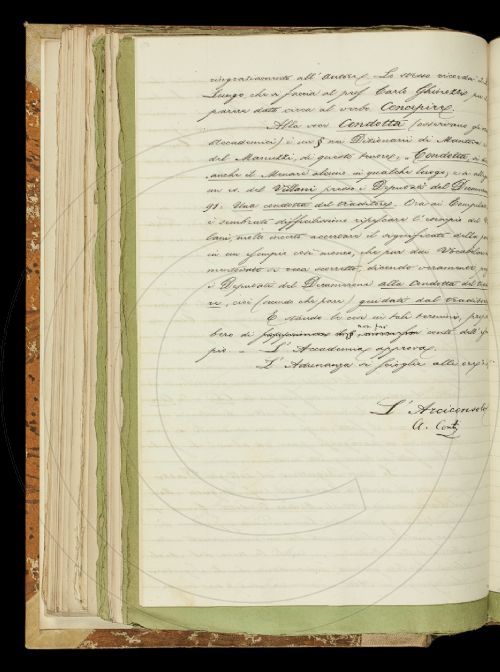 ringraziamento all'Autore. Lo stesso ricorda
Luogo che si faccia al prof. Carlo Ghinozzi
parere dato circa al verbo Concepire.
Alla voce Condotta (osservano gli
Accademici) è un § nei Dizionarii di Mantova
del Manuzzi, di questo tenore: Condotta,
anche il Menare alcuno in qualche luogo, e si
un es. del Villani presso i Deputati del Decameron
98: Una condotta del traditore. Ora ai Compilatori
è sembrato difficilissimo ripescare l'esempio del
lani, molto incerto accertare il significato della
in un esempio così monco, che pur due Vocabolarii
mentovati si reca scorretto, dicendo veramente
i Deputati del Decamerone alla condotta del
re, cioè (secondo che pare) guidate dal traditore
E stando le cose in tali termini,
bero di non far conto dell'
pio. L'Accademia approva.
L'Adunanza si scioglie alle ore
L'Arciconsolo
A. Conti